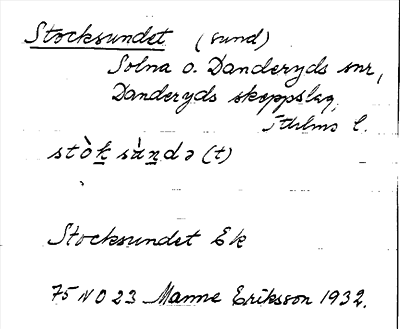 Stocksundet (sund)
Solna o. Danderyds snr,
Danderyds skeppslag,
Sthlms l.
stòk sùndə (t)
Stocksundet Ek
75 NO 23 Manne Eriksson 1932.